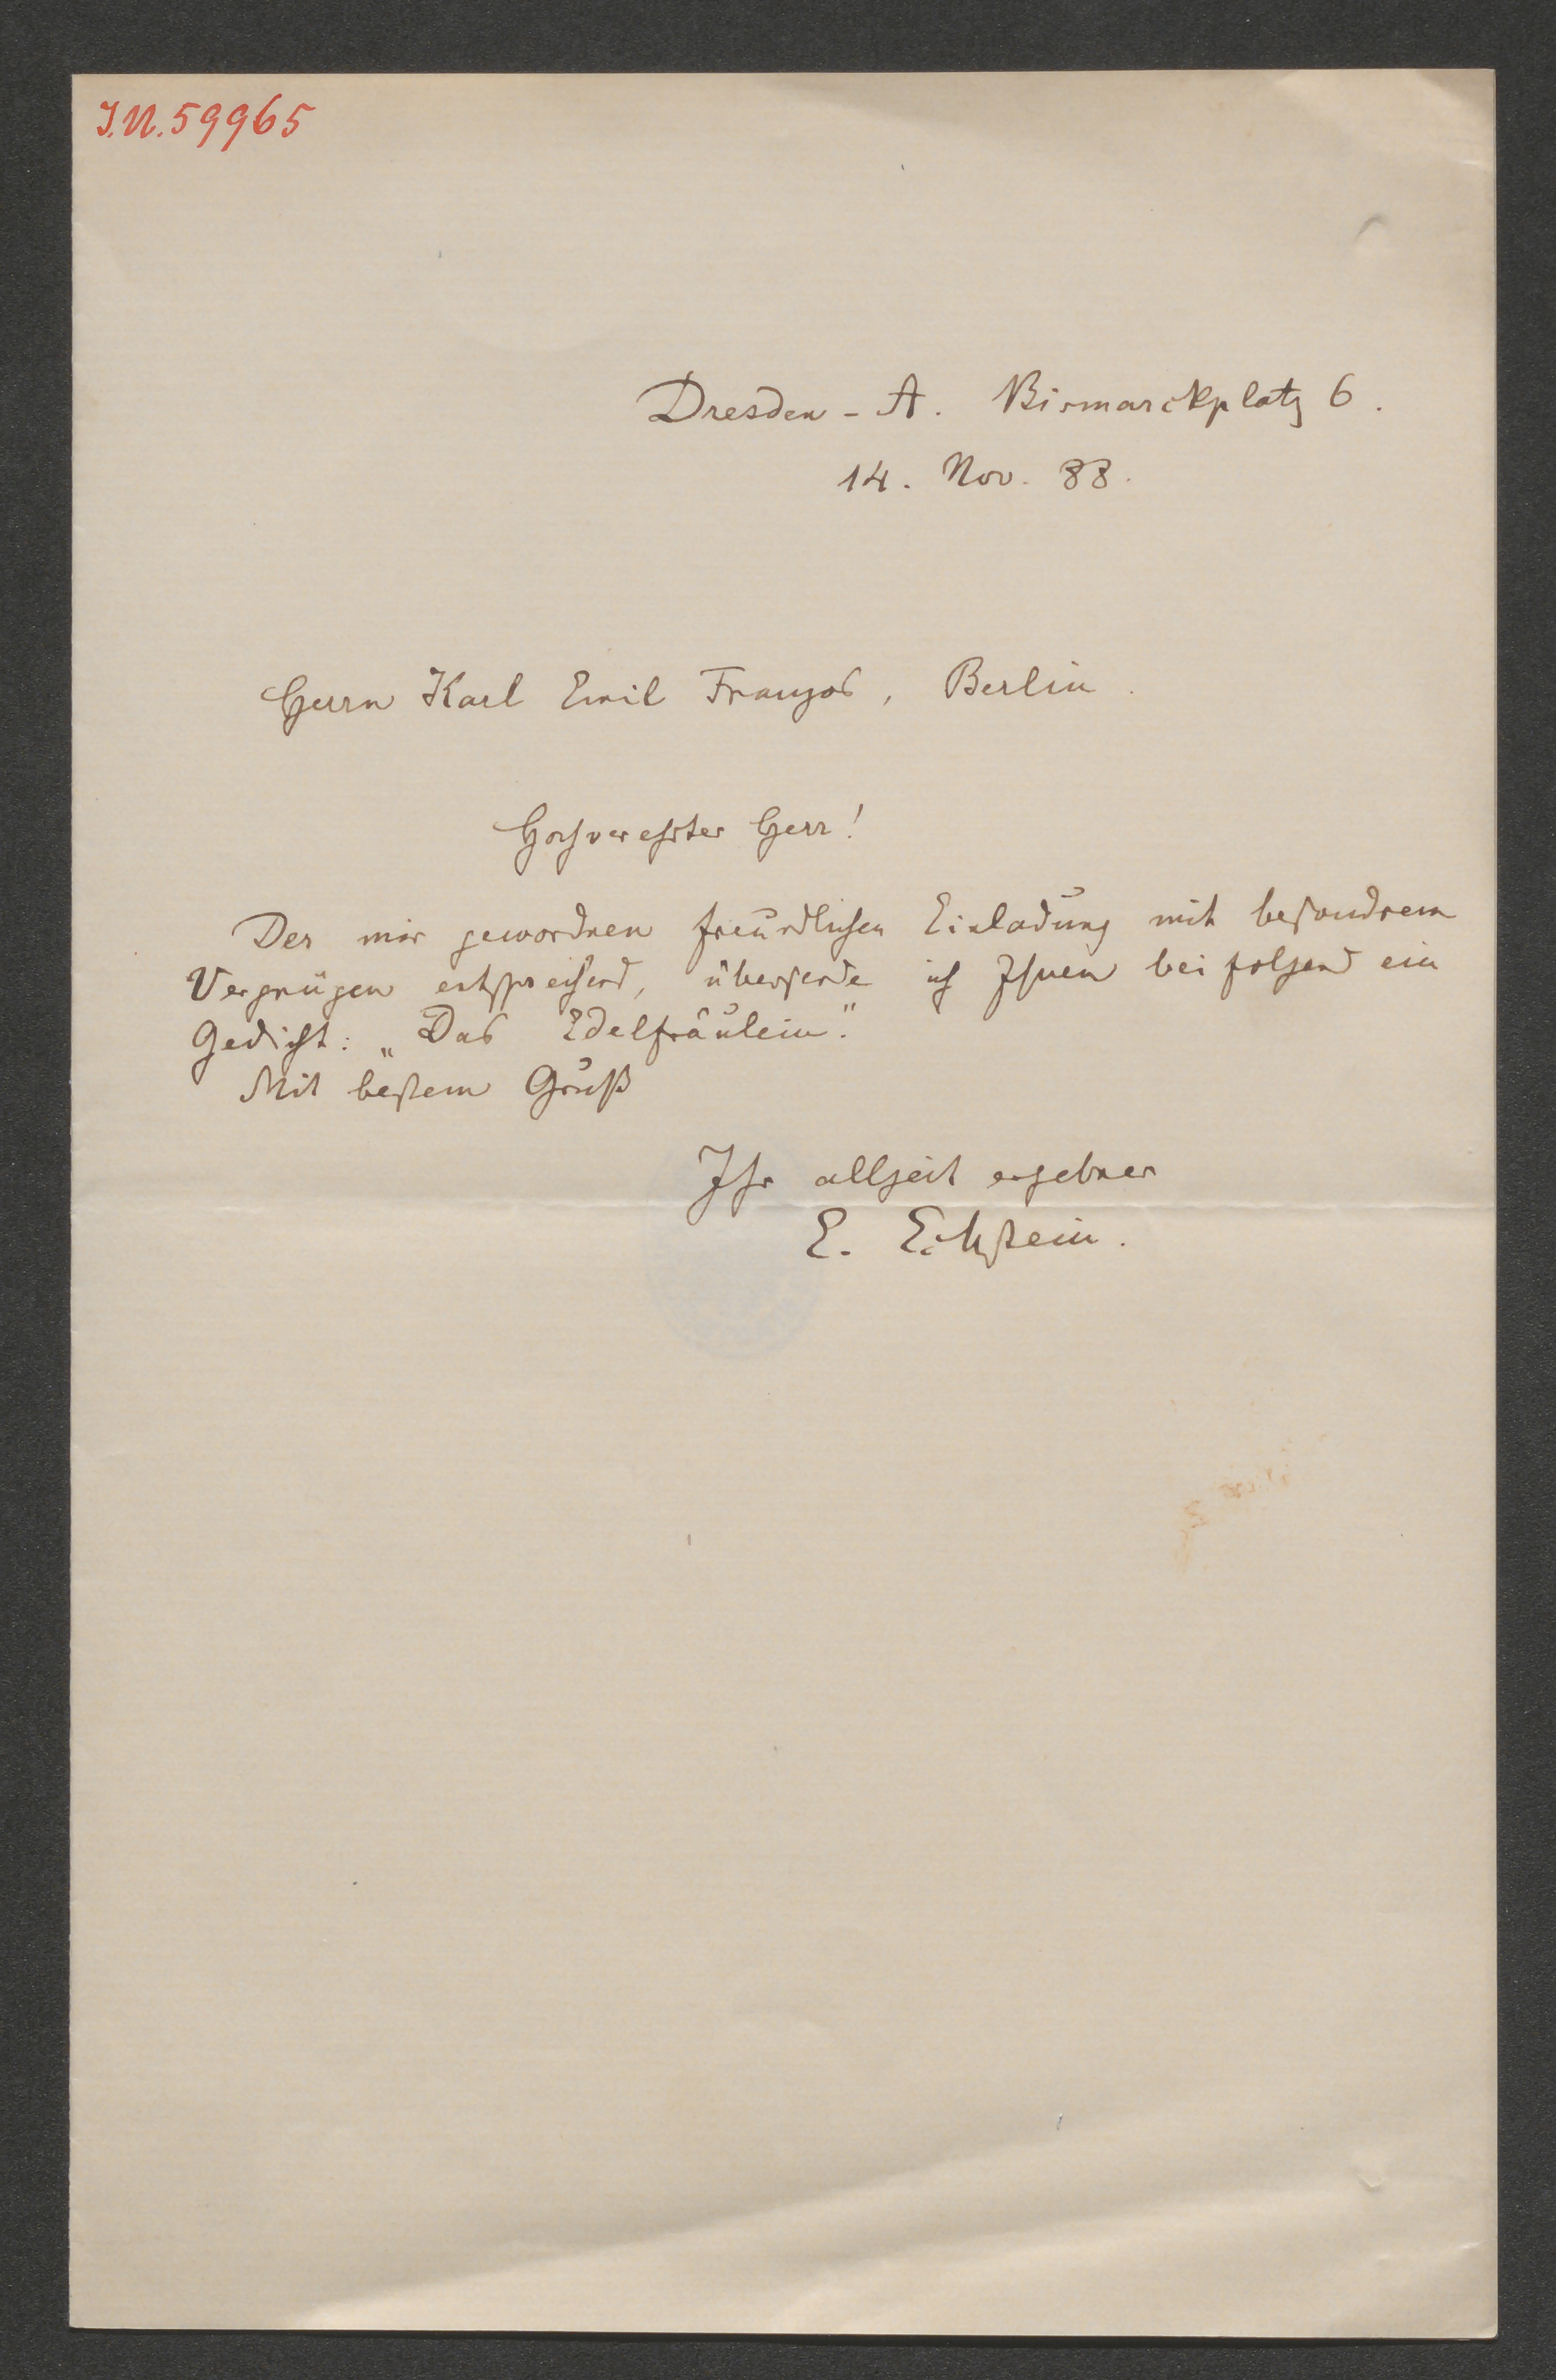 I.N. 59965
Dresden - A. Bismarckplatz 6.
14. Nov. 88.
Herrn Karl Emil Franzos, Berlin.
Hochverehrter Herr!
Der mir gewordnen freundlichen Einladung mit besondrem
Vergnügen entsprechend, übersende ich Ihnen beifolgend ein
Gedicht: „Das Edelfräulein."
Mit bestem Gruß
Ihr allzeit ergebner
E. Eckstein.